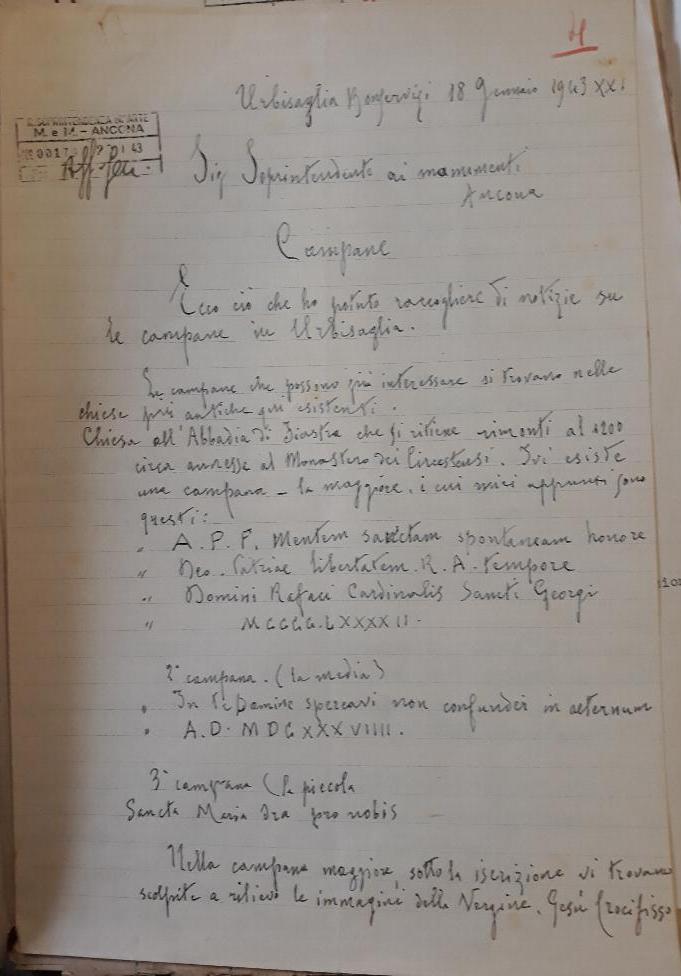 4
Urbisaglia Bonservizi 18 Gennaio 1943 XXI
R. SOPRINTENDENZA
M. e M. - ANCONA
Sig Soprintendente ai monumenti
Ancona
Campane
Ecco ciò che ho potuto raccogliere di notizie su
le campane in Urbisaglia.
Le campane che possono più interessare si trovano nelle
chiese più antiche qui esistenti.
Chiesa all'Abbadia di Fiastra che si ritiene rimonti al 1200
circa annesse al Monastero dei Circestensi. Ivi esiste
una campana - la maggiore, i cui miei appunti sono
questi:
" A. P. F. Mentem sanctam spontaneam honore
" Deo. Patriae libertatem. R. A. tempore
" Domini Rafaci Cardinalis Sancti Georgi
" MCCCC.LXXXXII.
2ª campana. (la media)
" In te Domine speravi non confunder in aeternum
" A.D. MDCXXXVIIII.
3ª campana (la piccola
Sancta Maria Ora pro nobis
Nella campana maggiore, sotto la iscrizione vi trovano
scolpite a rilievo le immagini della Vergine, Gesù Crocifisso